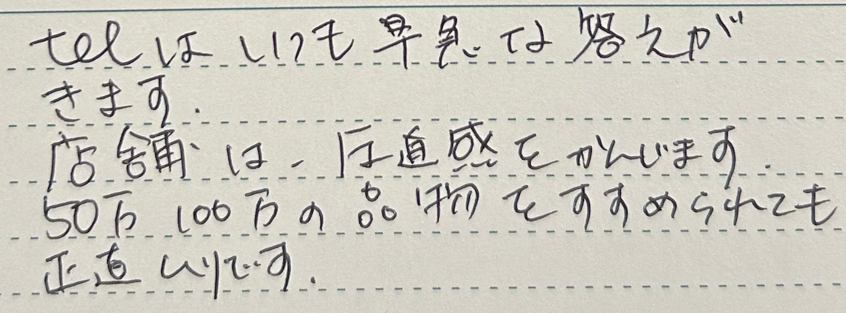 telはいつも早急な答えが
きます.
店舗は、圧迫感をかんじます.
50万100万の品物をすすめられても
正直ムリです.